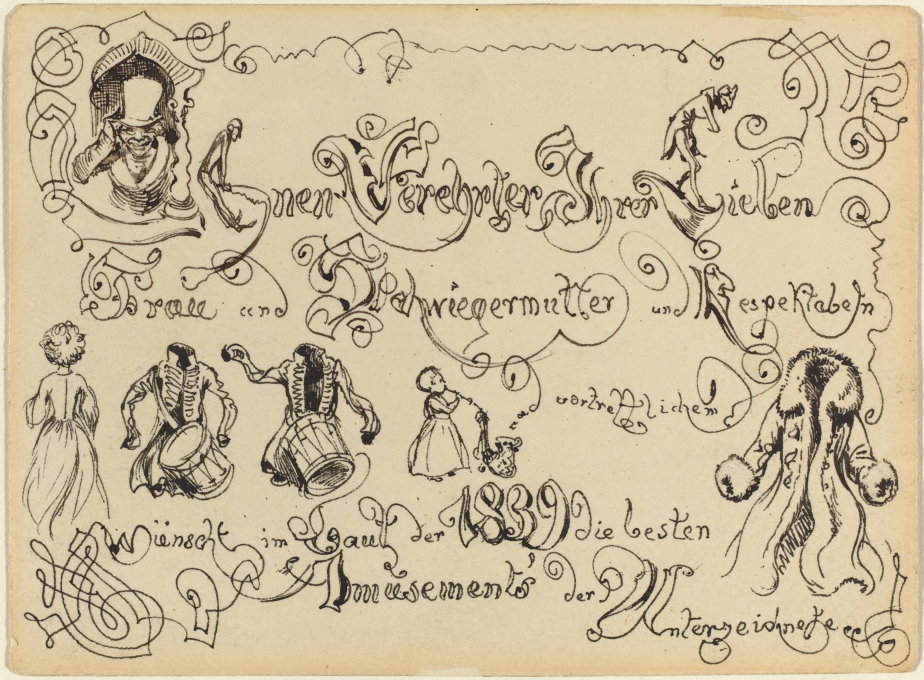 Ihnen Verehrter, Ihrer Lieben
Frau und Schwiegermutter und Respektabeln
und vortrefflichen
Wünscht im Lauf der 1839 die besten
Amüsements der Unterzeichnete